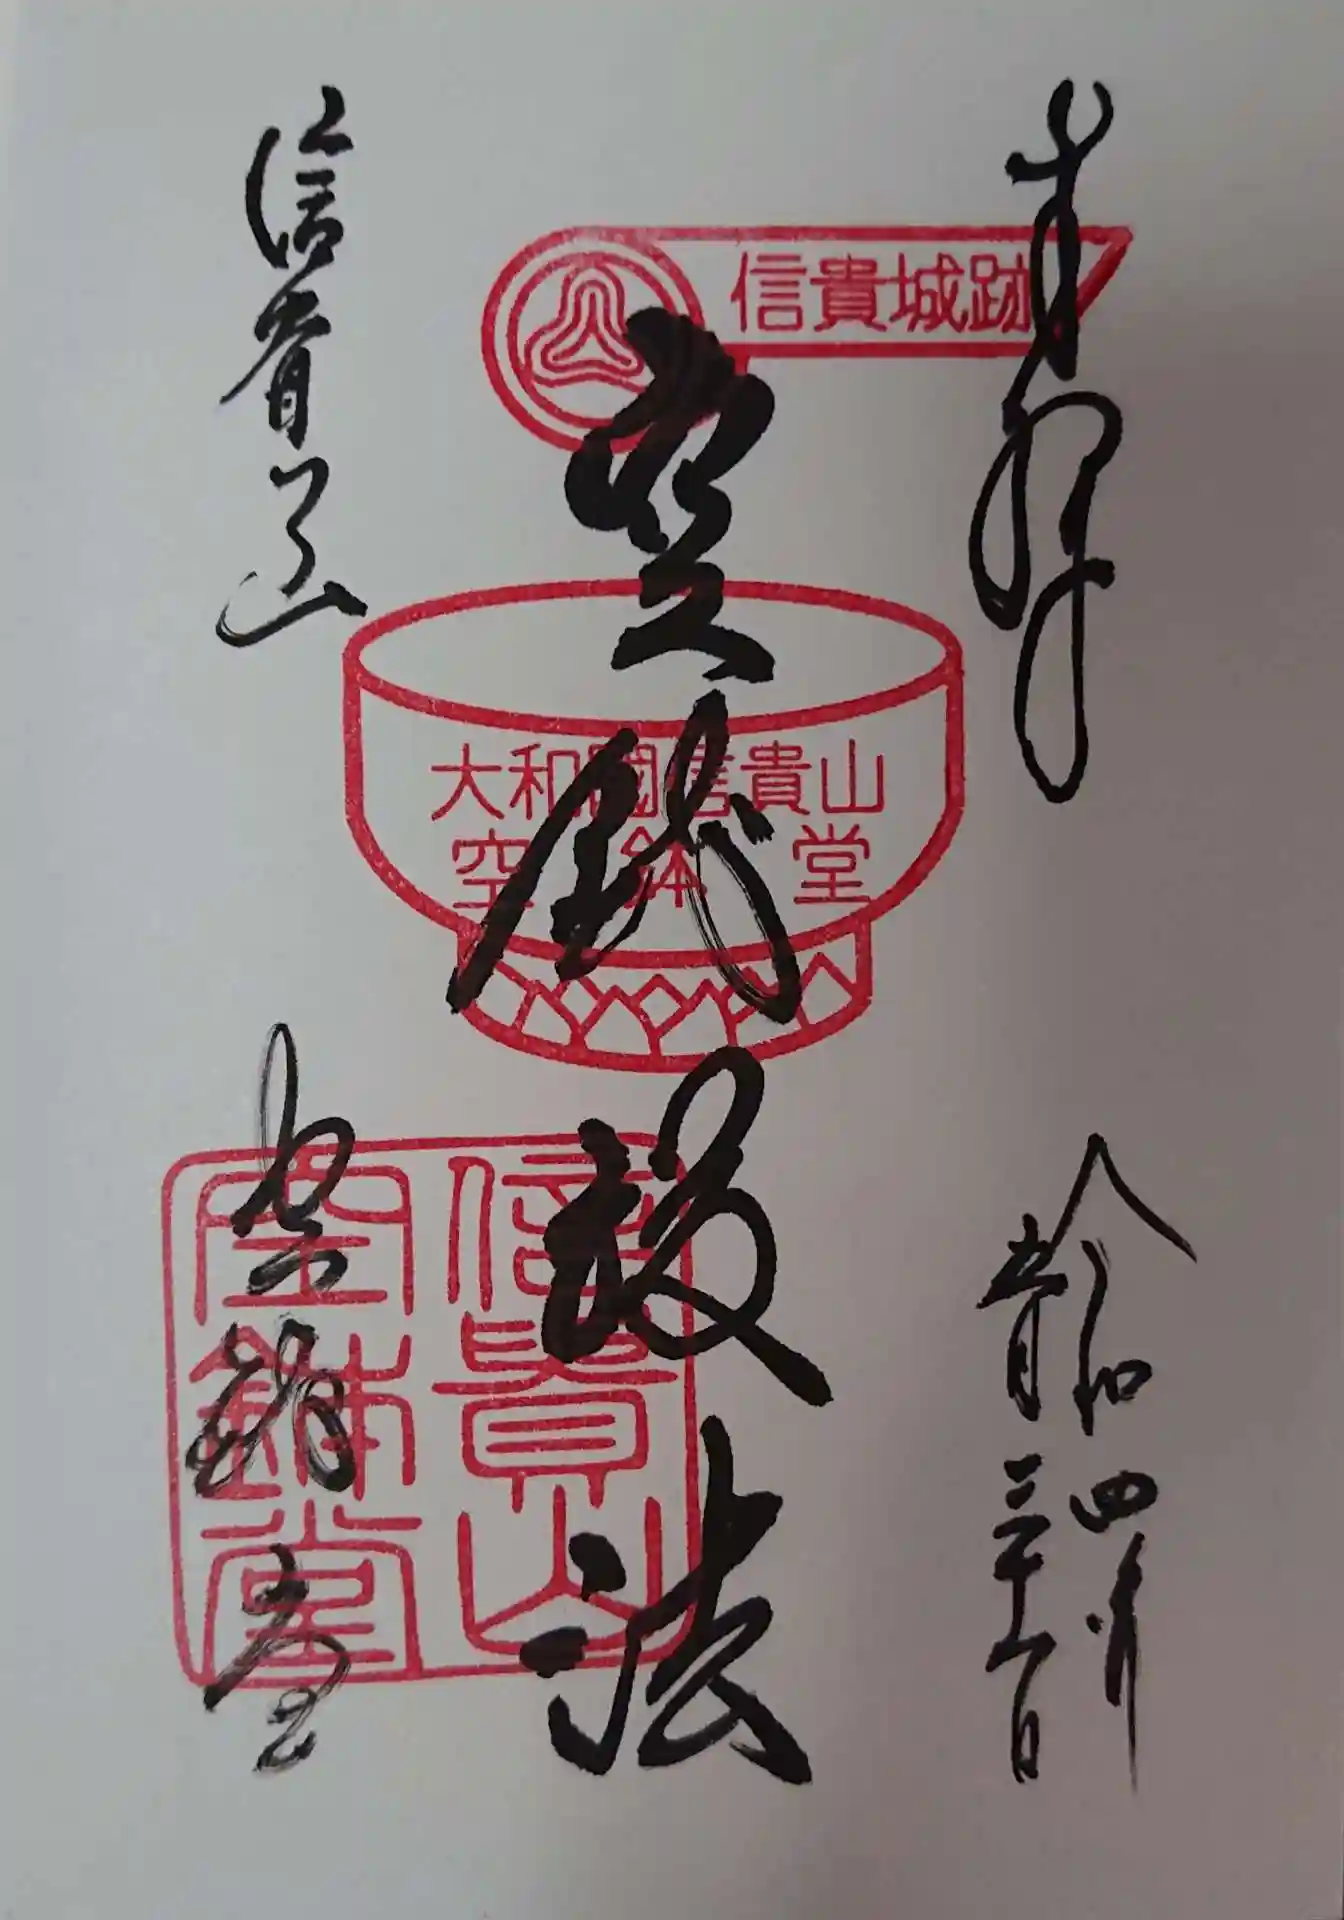 奉拝
令和四年
五月
信貴城跡
空鉢護法
大和國信貴山
空鉢堂
信貴山
空鉢堂
信貴山
空鉢堂